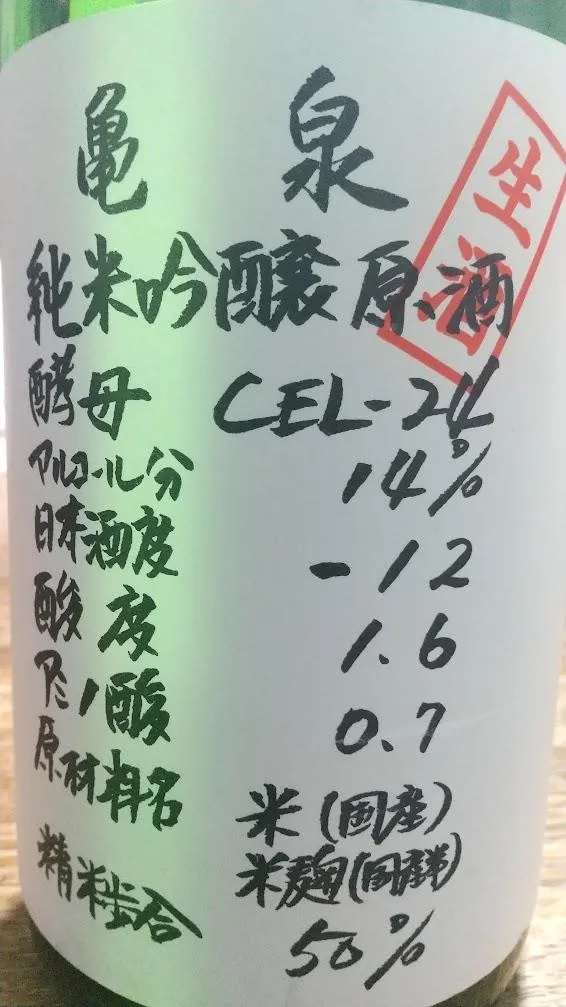 亀泉
生酒
純米吟醸原酒
酵母 CEL-24
アルコール分 14%
日本酒度 -12
酸度 1.6
アミノ酸 0.7
原材料名 米(国産)
米麹(国産米)
精米歩合 50%